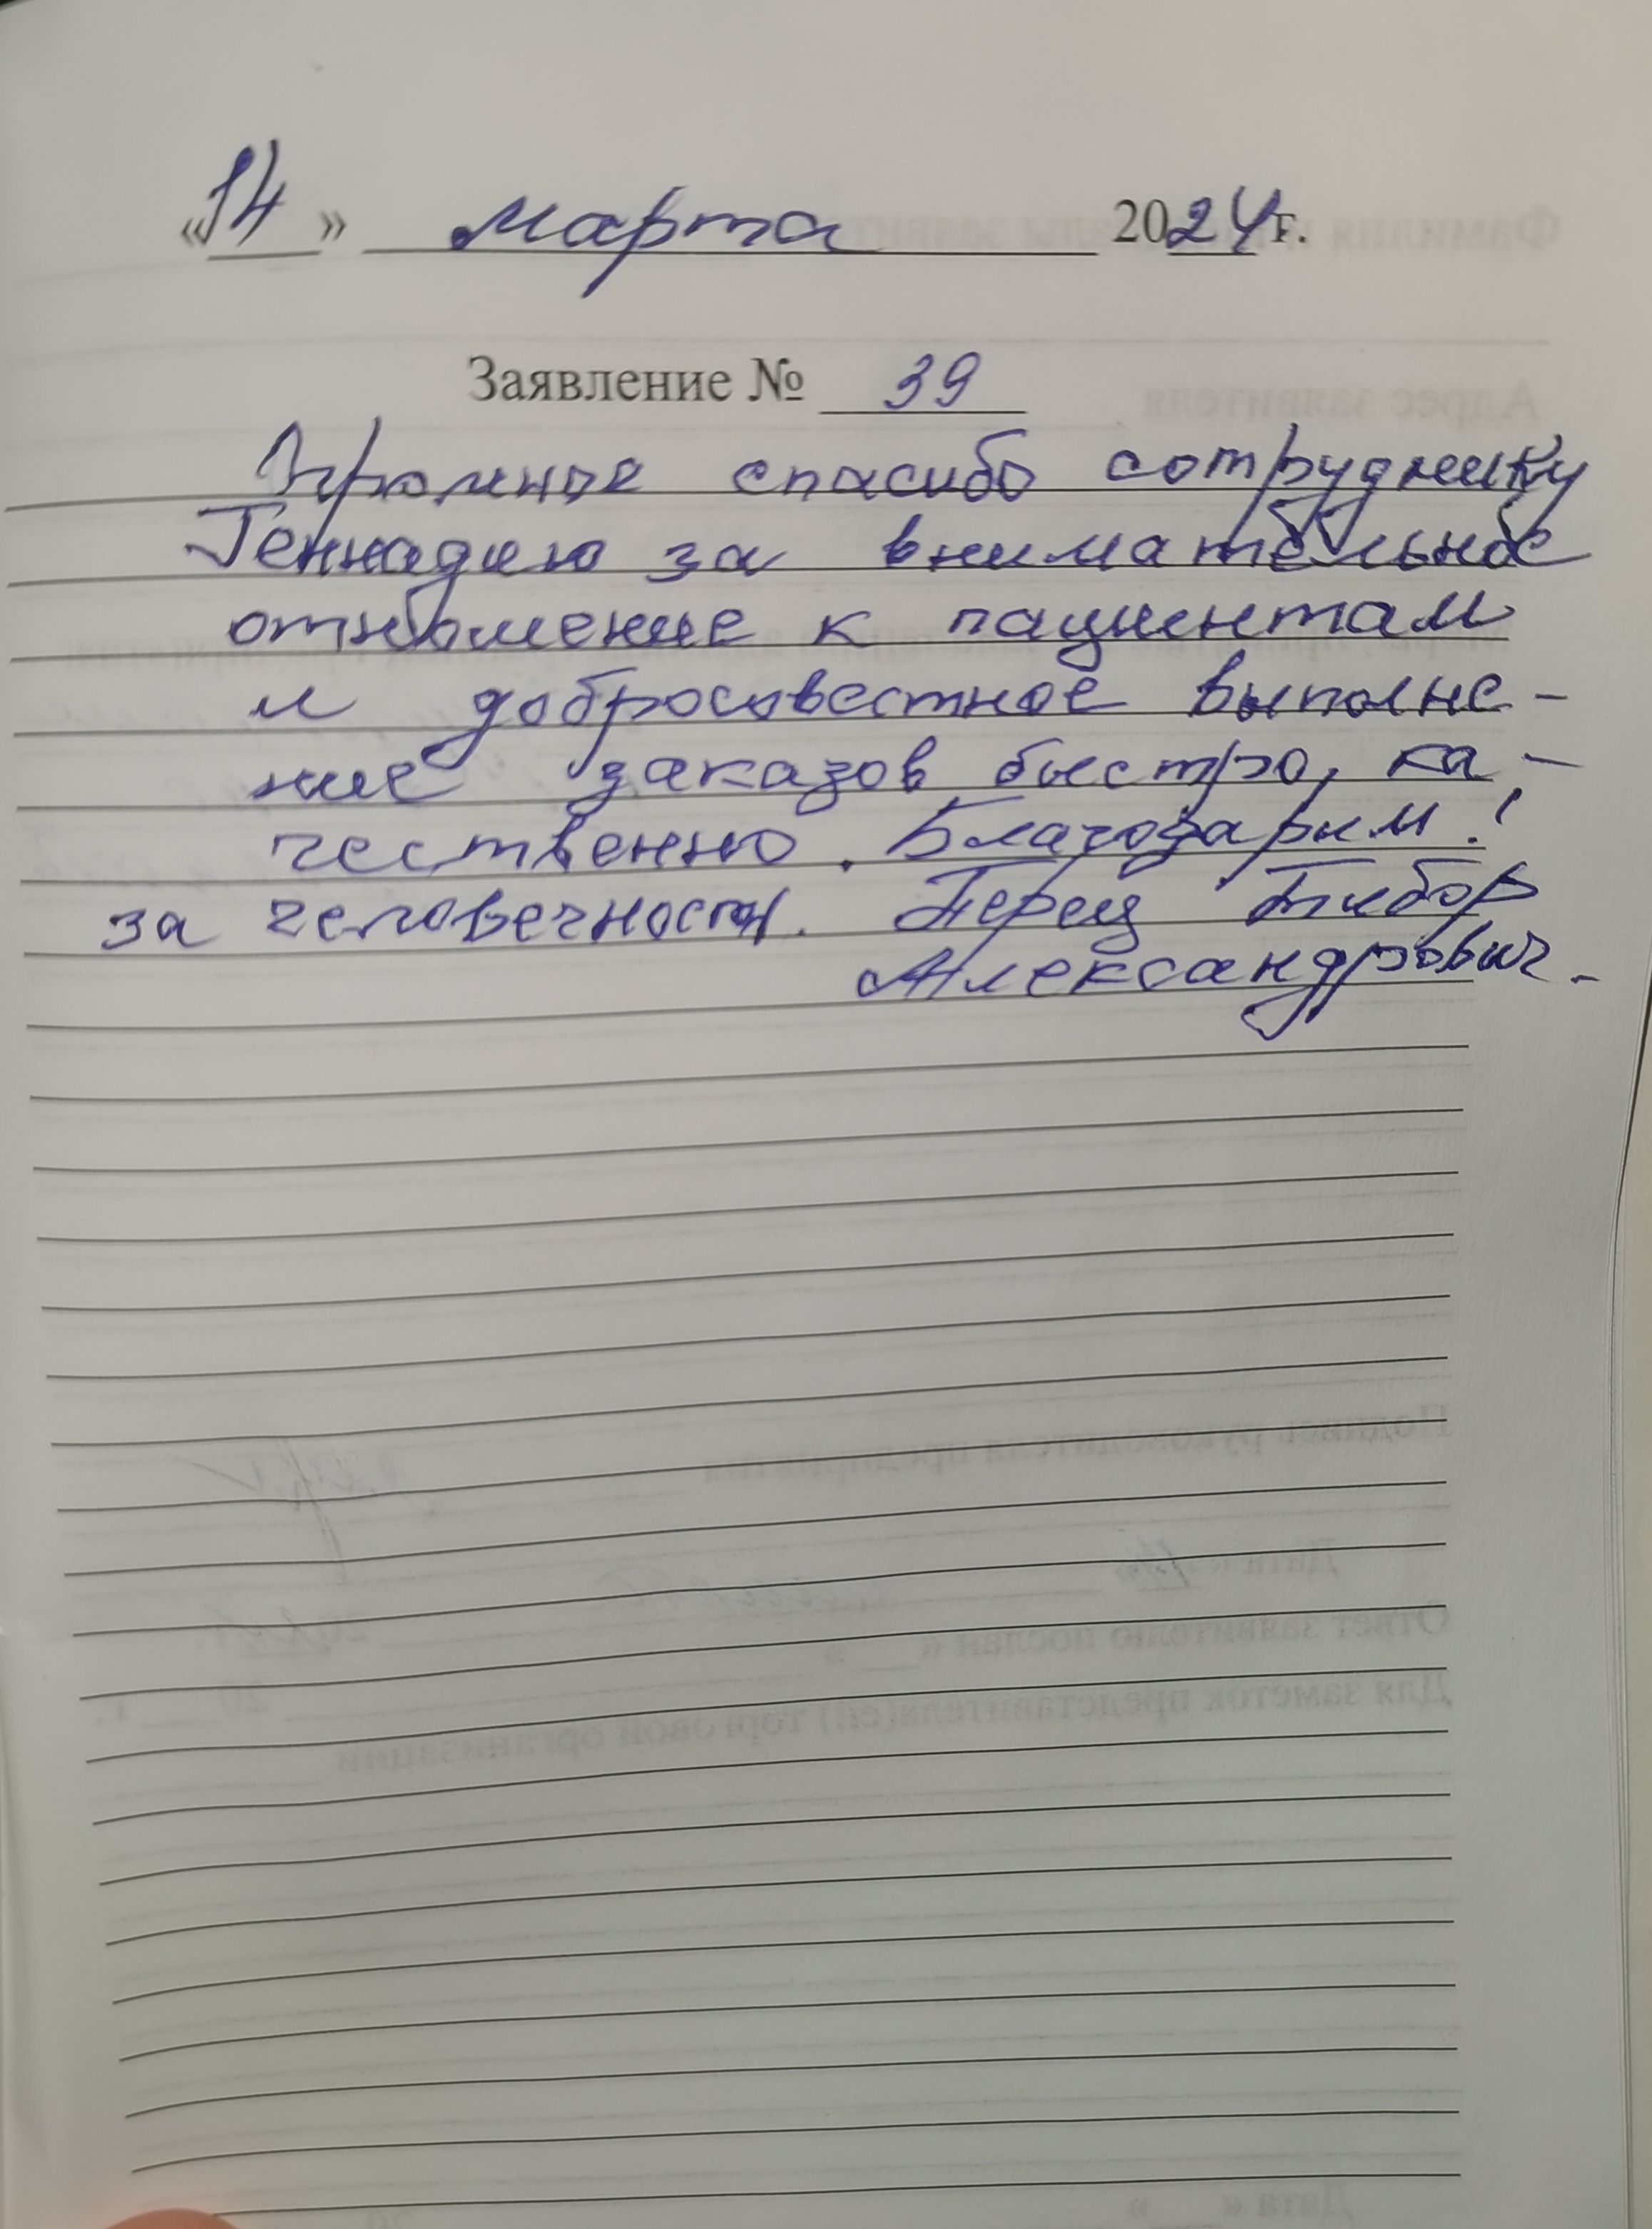 «14» марта 2024г.
Заявление № 39
Огромное спасибо сотруднику
Геннадию за внимательное
отношение к пациентам
и добросовестное выполне-
ние заказов быстро, ка-
чественно. Благодарим!
за человечность. Перец Тибор
Александрович.